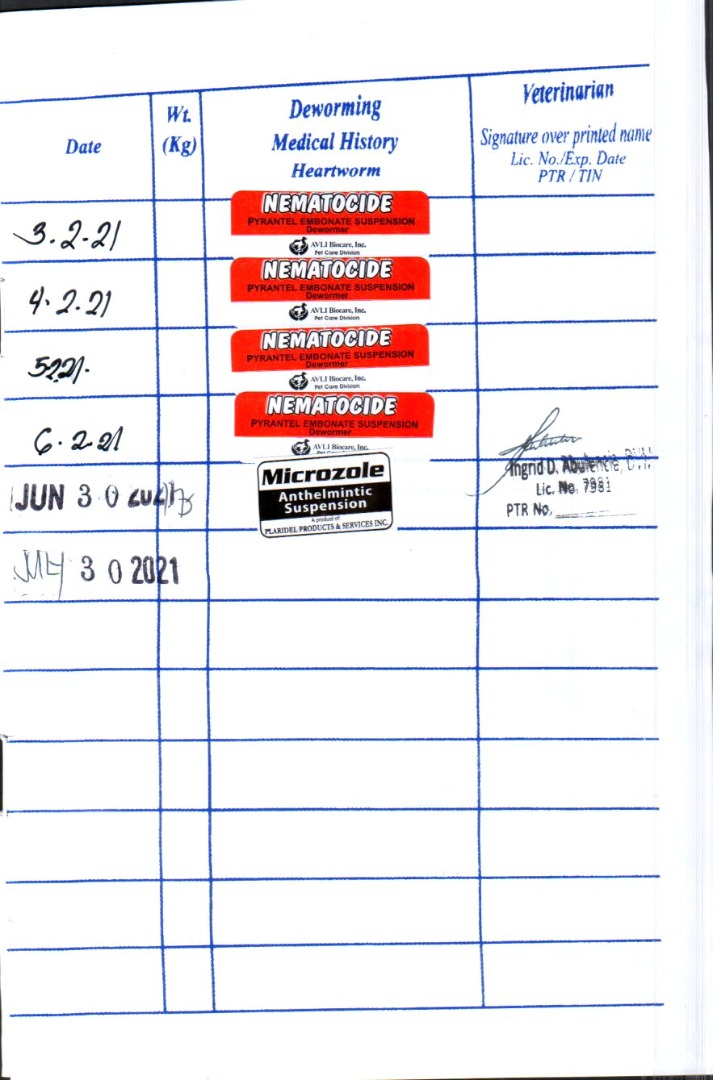 Date
Wt.
(Kg)
Deworming
Medical History
Heartworm
Veterinarian
Signature over printed name
Lic. No./Exp. Date
PTR / TIN
3.2.21
NEMATOCIDE
PYRANTEL EMBONATE SUSPENSION
Dewormer
AVLI Biocare, Inc.
Pet Care Division
4.2.21
NEMATOCIDE
PYRANTEL EMBONATE SUSPENSION
Dewormer
AVLI Biocare, Inc.
Pet Care Division
5221.
NEMATOCIDE
PYRANTEL EMBONATE SUSPENSION
Dewormer
AVLI Biocare, Inc.
Pet Care Division
6.2.21
NEMATOCIDE
PYRANTEL EMBONATE SUSPENSION
Dewormer
AVLI Biocare, Inc.
JUN 30 2021
Microzole
Anthelmintic
Suspension
A product of:
PLARIDEL PRODUCTS & SERVICES INC.
Ingrid D.
Lic. No. 7981
PTR No.
JULY 30 2021